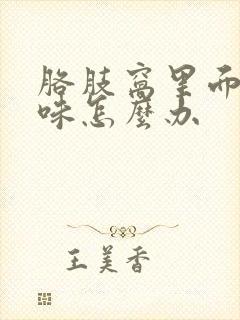 胳肢窝里而
味怎麽办
王美香